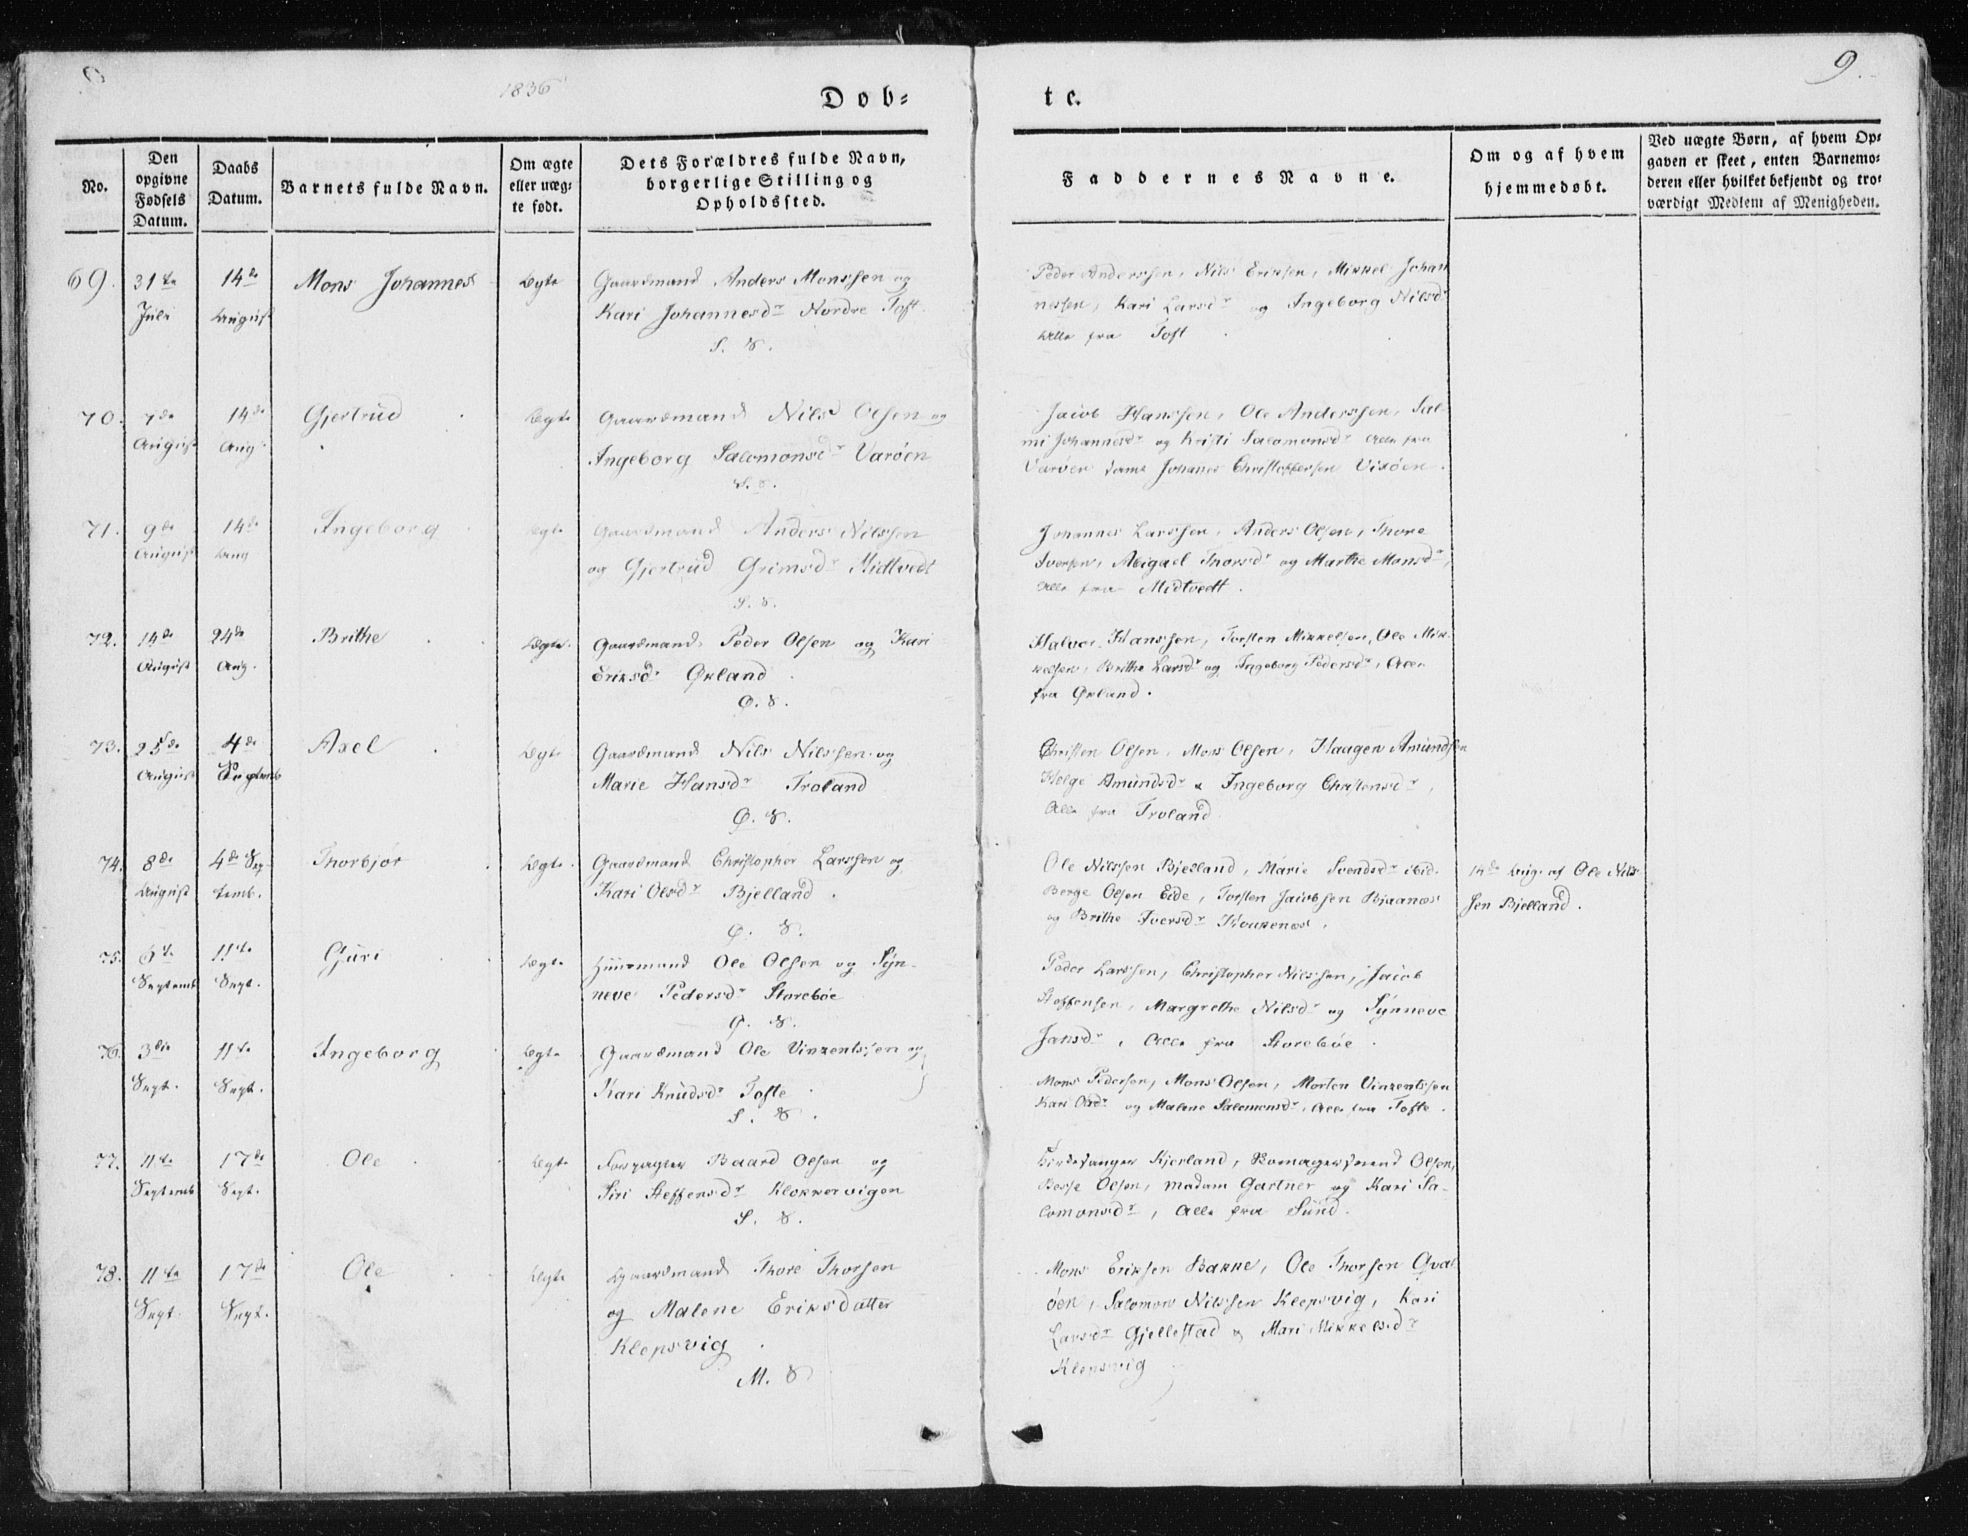 1836
9.
Dob=
te.
No.
Den opgivne Fødsels Datum.
Daabs Datum.
Barnets fulde Navn.
Om ægte eller uæg= te født.
Dets Forældres fulde Navn, borgerlige Stilling og Opholdssted.
Faddernes Navne.
Om og af hvem hjemmedøbt.
Ved uægte Børn, af hvem Op= gaven er skeet, enten Barnemo= deren eller hvilket bekjendt og tro= værdigt Medlem af Menigheden.
69. 31te 14de Mons Johannes Ægte Gaardmand Anders Monssen og
Juli August Kari Johannesdr Nordre Toft
S. S.
Peder Anderssen, Nils Eriksen, Mikkel Johan
nessen, Kari Larsdr og Ingeborg Nilsdr
Alle fra Toft
70. 7de 14de Gjertrud Ægte Gaardmand Nils Olsen og
August Aug. Ingeborg Salomonsdr Varöen
S. S.
Jacob Hanssen, Ole Anderssen, Sal-
mi Johannesdr og Kristi Salomonsdr Alle fra
Varöen samt Johanes Christoffersen Vixöen.
71. 9de 14de Ingeborg Ægte Gaardmand Anders Nilssen
August Aug og Gjertrud Grimsdr Midtvedt
S. S.
Johannes Larssen, Anders Olsen, Thore
Iversen, Abigael Thorsdr og Marthe Monsdr,
Alle fra Midtvedt.
72. 14de 24de Brithe Ægte. Gaardmand Peder Olsen og Kari
August Aug. Eriksdr Økland
Ø. S.
Halvor Hanssen, Torsten Mikkelsen, Ole Mik-
kelsen, Brithe Larsdr og Ingeborg Pedersdr, Alle
fra Økland.
73. 25de 4de Axel Ægte Gaardmand Nils Nilssen og
August Septemb Marie Hansdr Troland
Ø. S.
Christen Olsen, Mons Olsen, Haagen Amundsen
Helge Amundsdr & Ingeborg Christensdr,
Alle fra Troland
74. 8de 4de Sep- Thorbjør Ægte. Gaardmand Christopher Larssen og
August temb. Kari Olsdr Bjelland.
Ø. S.
Ole Nilssen Bjelland, Marie Svendsdr ibid.
Berge Olsen Eide, Torsten Jacobsen Bjaanæs
og Brithe Iversdr Kvarenæs.
14de Aug. af Ole Nils
sen Bjelland.
75. 6te 11te Guri Ægte Huusmand Ole Olsen og Syn-
Septemb Sept. neve Pedersdr Storebøe
Ø. S.
Peder Larssen, Christopher Nilssen, Jacob
Steffensen, Margrethe Nilsdr og Synneve
Jansdr, Alle fra Storebøe.
76. 3die 11te Ingeborg Ægte Gaardmand Ole Vinzentssen og
Sept. Sept. Kari Knudsdr Tofte
S. S.
Mons Pedersen, Mons Olsen, Morten Vinzentssen
Kari Olsdr og Malene Salomonsdr. Alle fra Tofte.
77. 11te 17de Ole Ægte Forpagter Baard Olsen og
Septemb Sept. Siri Steffensdr Klokkervigen
S. S.
Kjerland, Olsen,
Besse Olsen, Madam Gartner og Kari Sa-
lomonsdr, Alle fra Sund.
78. 11te 17de Ole Ægte Gaardmand Thore Thorsen
Sept. Sept. og Malene Eriksdatter
Klepsvig
M. S
Mons Eriksen Bakke, Ole Thorsen Qval
öen, Salomon Nilssen Klepsvig, Kari
Larsdr Gjellestad & Mari Mikkelsdr
Klepsvig